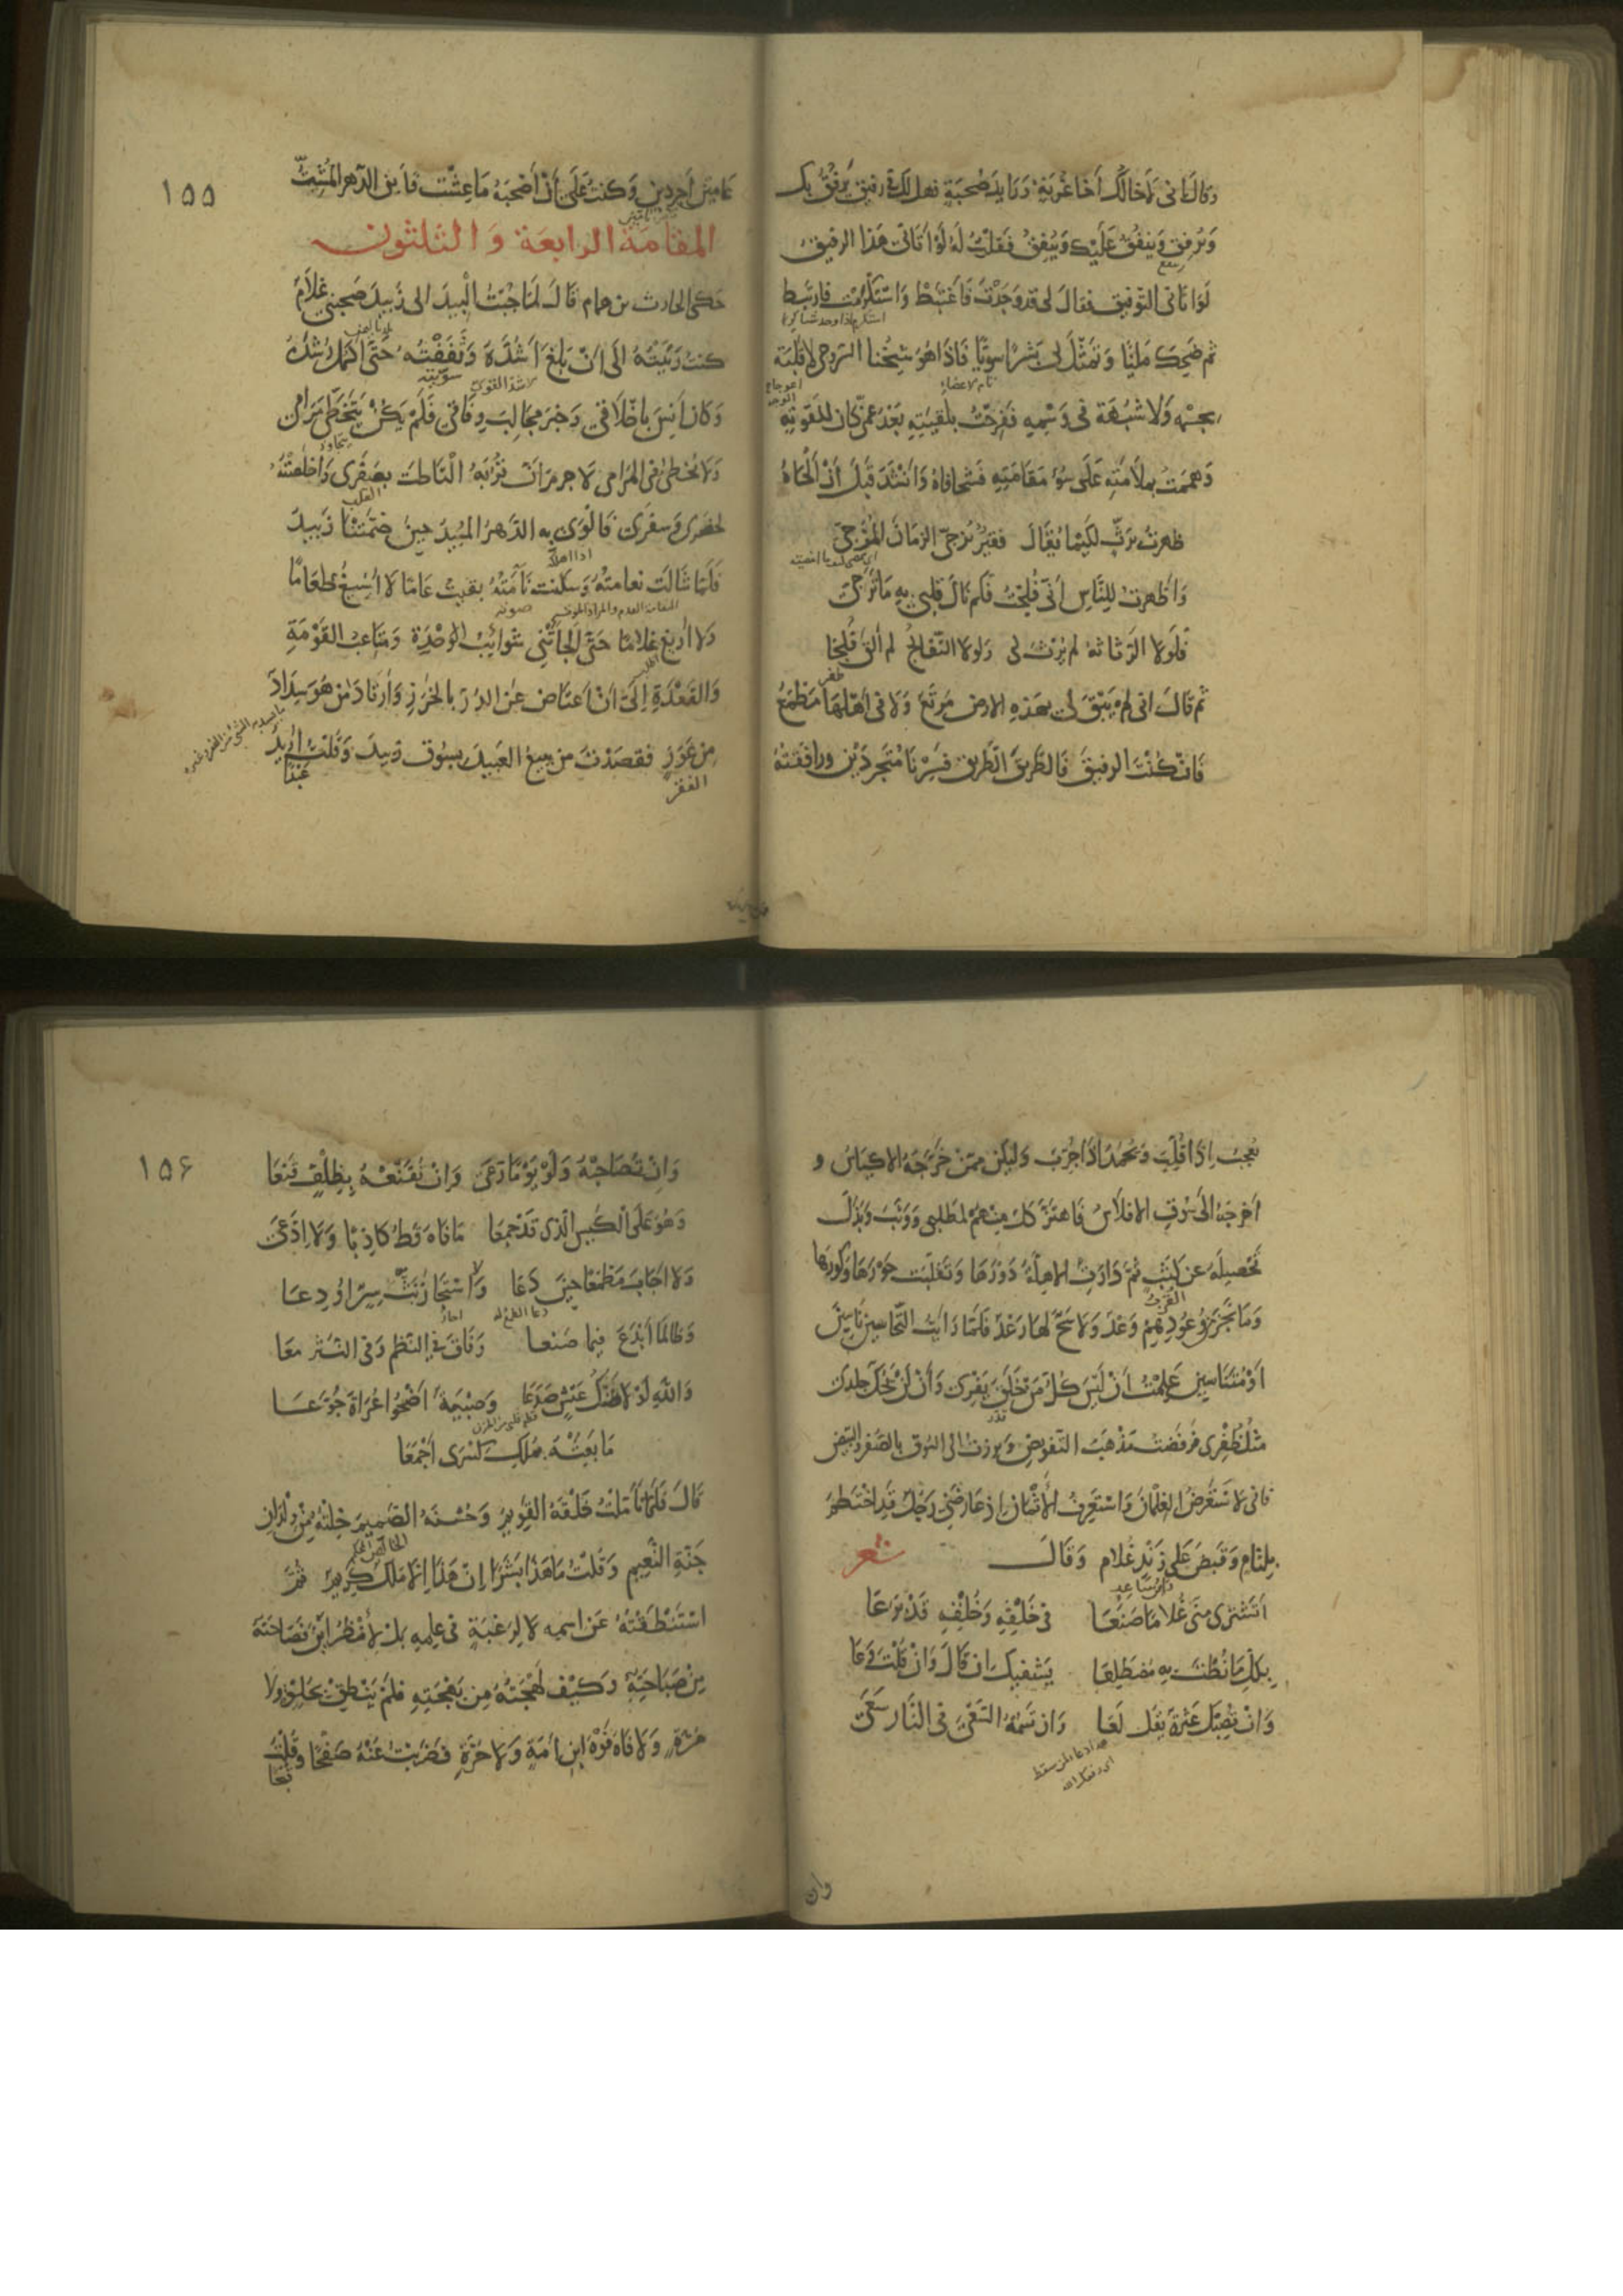 وَقَالَ اني لَاَخَالُكَ أَخَا غُرْبَةٍ وَرَايِدَ صُحْبَةٍ فهل لَكَ في رفيق يَرْفُقُ بك
وَيُرفِق وَيَنْفُقُ عَلَيْك وَيُنْفِقُ فَقُلْتُ لَهُ لَوْ أَتَاني هَذا الرفيق
لَوَاتَاني التوفيق فقال لي قد وَجَدْتَ فَاغْتَبِطْ وَاسْتَكْرَمْتَ فارتَبِط
ثم ضَحِكَ مَلِيًّا وَتَمَثَّلَ لي بَشَرًا سويًّا فَاذَا هُوَ شيخُنا السَّروجي لا قَلَبَة
بجسْمِه وَلا شُبْهَة في وَسْمِهِ فَفَرِحْتُ بلُقيَتِهِ بَعْدَ
وَهَمَمْتُ بملَامَتِهِ عَلَى سُوءِ مَقَامَتِهِ فَشَحَا فَاهُ وَانْشَدَ قَبْلَ أنْ أَلْحَاهُ
ظهرتُ برَثٍّ لكَيْمَا يُقَالَ فقيرٌ يُزَجّي الزمَانَ المُزَجّى
وَأَظهرتُ لِلنَّاسِ أنّي فُلِجْتُ فَكم نَالَ قلبي بهِ مَا تَرَجّى
فَلَولا الرَّثَاثةُ لم يُرْثَ لي وَلولا التَّفَالُجُ لم ألقَ فُلْجَا
ثم قالَ انهُ لم يَبْقَ لي بهذهِ الارض مَرْتَعٌ وَلا في اهْلِهَا مَطْمَعٌ
فَان كُنْتَ الرفيقَ فَالطَّرِيقَ الطّرِيق فَسِرْنَا مُتَجَرِّدَيْن ورافَقتُهُ
١٥٥
عَامَيْنِ أجرَدين وَكنتُ عَلَى أنْ أَصْحَبَهُ مَا عِشْتُ فأبى الدّهر المُشِتُّ
المقامَة الرابعَة وَالثلثون
حَكَى الحارث بن همام قَالَ لمَّا جُبْتُ البِيدَ الى زَبيدَ صَحِبَني غلامٌ
كنتُ رَبَّيْتُهُ الى أنْ بَلغَ اَشُدَّهُ وَثَقَّفْتُهُ حَتَّى اكمل رُشْدَهُ
وَكان أَنِسَ باخْلَاقي وَخبَرَ مجَالِبَ وِفَاقي فَلَمْ يَكُنْ يَتَخَطَّى مَرَامي
وَلا يُخطئ في المَرَامي لا جرم اَنّ قُرَبَهُ الْتَاطَتْ بصَفَري وَأخلصْتُهُ
لحضَري وَسفَري فَالْوَى بهِ الدّهرُ المُبيدُ حينَ ضمَّتْنَا زَبيدُ
فلَمّا شَالَتْ نعامَتُهُ وَسكَنت نَأمَتُهُ بقيتُ عَامًا لا أُسِيغُ طعَامًا
وَلا أُريغ غلامًا حَتَّى ألجأتْني شوائِبُ الوحْدَةِ وَمتَاعِبُ القَوْمَةِ
وَالقَعْدَةِ إلى أنْ اعتَاضَ عَن الدُرّ بالخَرَزِ وَأرتَادَ مَن هُوَ سِدَادٌ
مِن عَوَزٍ فقصَدْتُ من يبيعُ العَبِيدَ بسوق زبيد وَقلتُ اُريدُ
الفقر
يُعجِبُ اِذَا قُلِّبَ وَيُحْمَدُ اذَا جُرِّبَ وَليكُن ممّن خَرَّجَهُ الاكيَاسُ و
اخرجَهُ الى السُّوقِ الافلاسُ فَاهتزّ كلٌّ مِنهُم لمطلبي وَوثَبَ وَبَذَلَ
تَحْصِيلَهُ عن كَثَبٍ ثُمَّ دَارَتِ الاهِلّةُ دَوْرَهَا وَتَقَلَّبَتْ حَوْرَهَا وَكَوْرَهَا
وَمَا نَجَزَ مِنْ وُعُودِهِمْ وَعْدٌ وَلا سَحَّ لهَا رَعْدٌ فَلَمّا رَأيْتُ النّخّاسينَ نَاسِينَ
اوْ مُتَنَاسِينَ عَلِمْتُ أنْ لَيْسَ كُلُّ مَنْ خَلَقَ يَفْري وَأنْ لَنْ يَحُكَّ جِلدي
مِثْلُ ظُفْري فرفضْتُ مَذْهَبَ التّفويض وَبرزتُ الى السّوق بالصُّفْرِ والبيض
فاني لاسْتَعْرِضُ الغِلْمَانَ وَاسْتَعْرِفُ الأَثْمَانَ إذ عَارَضَني رَجُلٌ قَدِ اخْتَطَمَ
بِلِثَامٍ وَقَبَضَ عَلَى زَنْدِ غُلَامٍ وَقَالَ شعر
اَتَشْتَرِي مِنّي غُلامًا صَنَعَا في خَلْقِهِ وَخُلْقِهِ قَدْ بَرَعَا
بِكلِّ مَا نُطْتَ بهِ مضطَلِعَا يَشفيك ان قَالَ وَان قُلْتَ وَعَا
وَانْ تُصِبْكَ عَثْرَةٌ يَقُل لَعَا وَان تَسُمْهُ السَّعْيَ في النّار سَعَى
وان
١٥٦
وَانْ تُصَاحِبْهُ وَلَوْ يَوْمًا رَعَى وَانْ تُقَنِّعْهُ بِظِلْفٍ قَنِعَا
وَهُوَ عَلَى الكَيْسِ الّذي قَدْ جَمَعَا مَا فَاهَ قَطُّ كاذِبًا وَلا ادّعَى
وَلا اجَابَ مَطْمَعًا حِينَ دَعَا وَلا اسْتَجَازَ بَثَّ سِرٍّ اُودِعَا
وَطَالَمَا أَبْدَعَ فِيمَا صَنَعا وَفَاقَ في النّظم وَفي النّثر معَا
وَاللهِ لَوْلا ضَنْكُ عَيْشٍ صَدَعَا وَصِبْيَةٌ اضْحَوْا عُرَاةً جُوَّعَا
مَا بعْتُهُ بمُلكِ كِسْرَى أجْمَعَا
قَالَ فَلَمّا تَأمّلْتُ خَلْقَهُ القَوِيمَ وَحُسْنَهُ الصّمِيمَ خِلْتُهُ مِنْ وِلْدَانِ
جَنّةِ النّعِيمِ وَقُلْتُ مَا هَذَا بَشَرًا اِنْ هَذَا اِلّا مَلَكٌ كَرِيم ثُمّ
اسْتَنْطَقْتُهُ عَن اسمِهِ لا لِرَغْبَةٍ في عِلْمِهِ بَل لأنْظُرَ أيْنَ فصَاحَتُهُ
مِنْ صَبَاحَتِهِ وَكَيْفَ لَهْجَتُهُ مِن بَهْجَتِهِ فلَمْ يَنْطِقْ بحُلْوَةٍ وَلا
مُرّةٍ وَلا فَاهَ فَوْهَ ابنِ أمَةٍ وَلا حُرّةٍ فضربتُ عَنْهُ صَفْحًا وَقُلْتُ